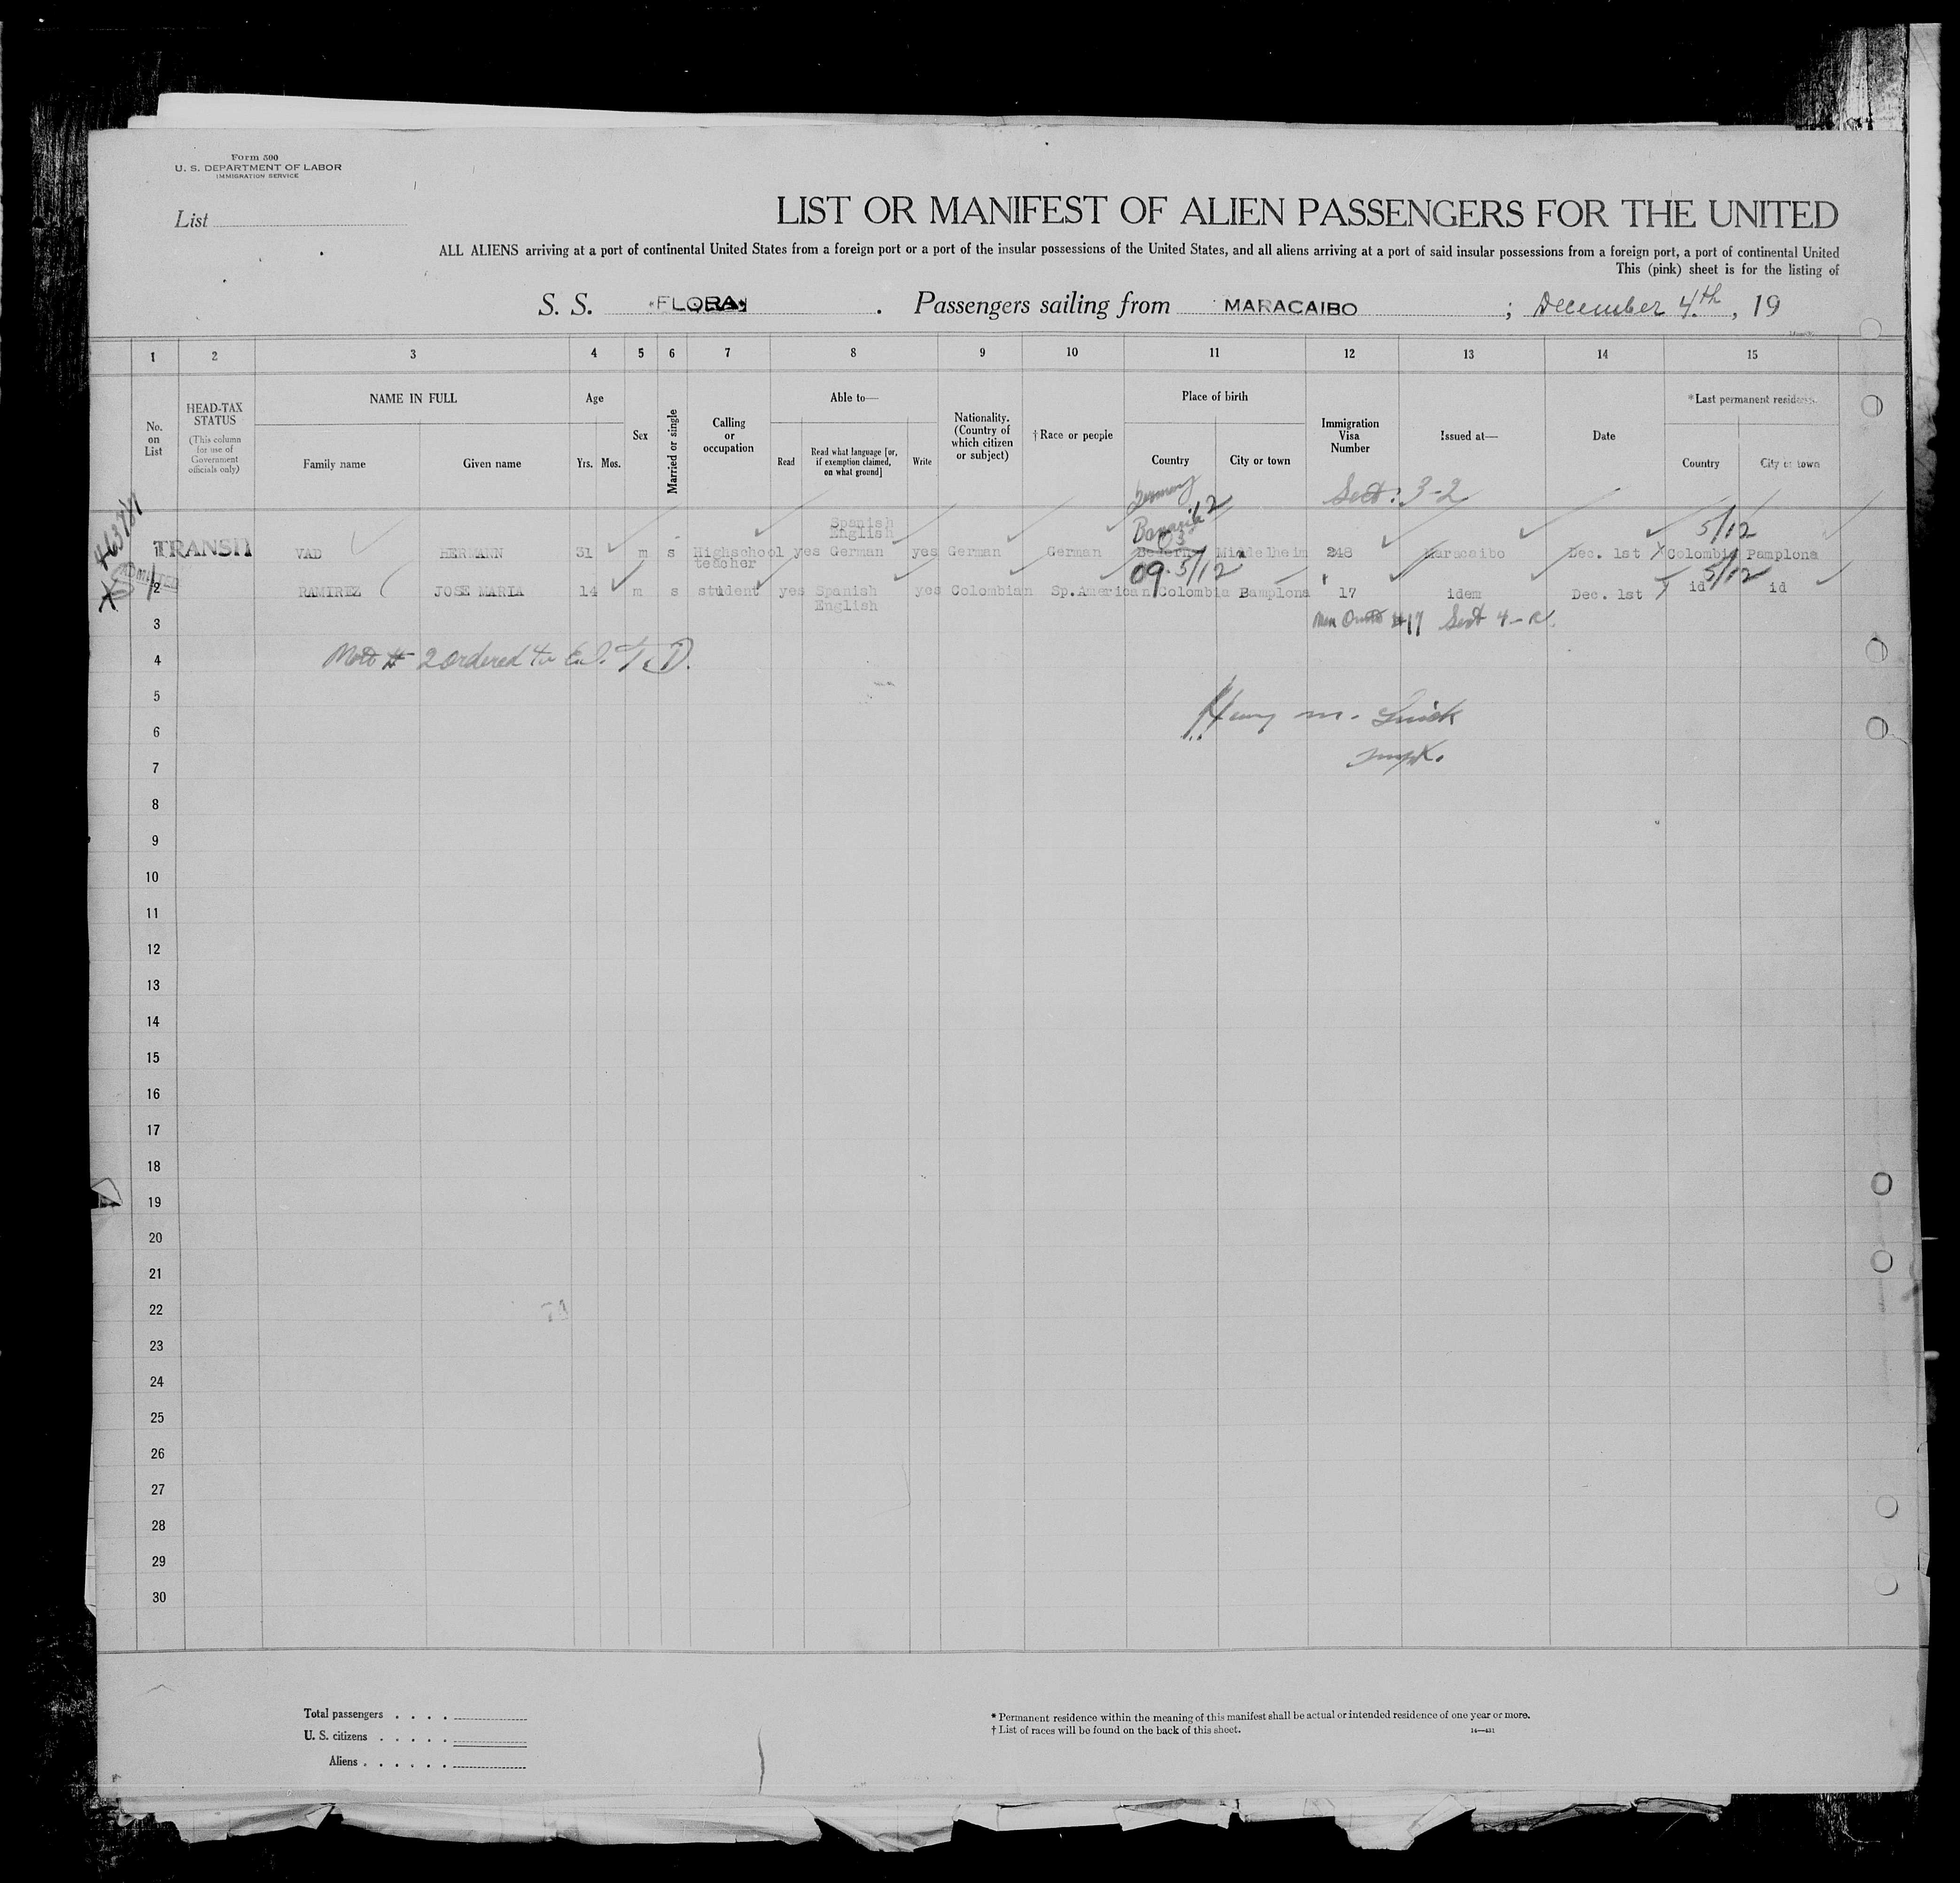 Form 500
U. S. DEPARTMENT OF LABOR
IMMIGRATION SERVICE
List
LIST OR MANIFEST OF ALIEN PASSENGERS FOR THE UNITED
ALL ALIENS arriving at a port of continental United States from a foreign port or a port of the insular possessions of the United States, and all aliens arriving at a port of said insular possessions from a foreign port, a port of continental United
This (pink) sheet is for the listing of
S. S. "FLORA" . Passengers sailing from MARACAIBO ; December 4th , 19
1 2 3 4 5 6 7 8 9 10 11 12 13 14 15
No. on List
HEAD-TAX STATUS
(This column for use of Government officials only)
NAME IN FULL
Family name Given name
Age
Yrs. Mos.
Sex
Married or single
Calling or occupation
Able to—
Read
Read what language [or, if exemption claimed, on what ground]
Write
Nationality. (Country of which citizen or subject)
† Race or people
Place of birth
Country City or town
Immigration Visa Number
Issued at—
Date
*Last permanent residence
Country City or town
Germany
Sect: 3-2
Spanish
English
5/12
TRANSIT
1 VAD HERMANN 31 m s Highschool teacher yes German yes German German Bayern Mindelheim 248 Maracaibo Dec. 1st Colombia Pamplona
09. 5/12 5/12
ADMITTED
2 RAMIREZ JOSE MARIA 14 m s student yes Spanish English yes Colombian Sp.American Colombia Pamplona 17 idem Dec. 1st id id
3 #17 Sect 4-
4 # 2 ordered
5
Harry M.
6
7
8
9
10
11
12
13
14
15
16
17
18
19
20
21
22
23
24
25
26
27
28
29
30
Total passengers . . . .
U. S. citizens . . . . .
Aliens . . . . . .
* Permanent residence within the meaning of this manifest shall be actual or intended residence of one year or more.
† List of races will be found on the back of this sheet.
14—451